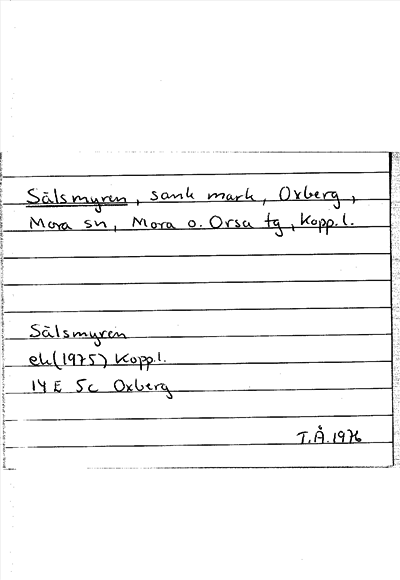 Sälsmyren, sank mark, Oxberg,
Mora sn, Mora o. Orsa tg, Kopp.l.
Sälsmyren
ek(1975) Kopp.l.
14E 5c Oxberg
T.Å.1976